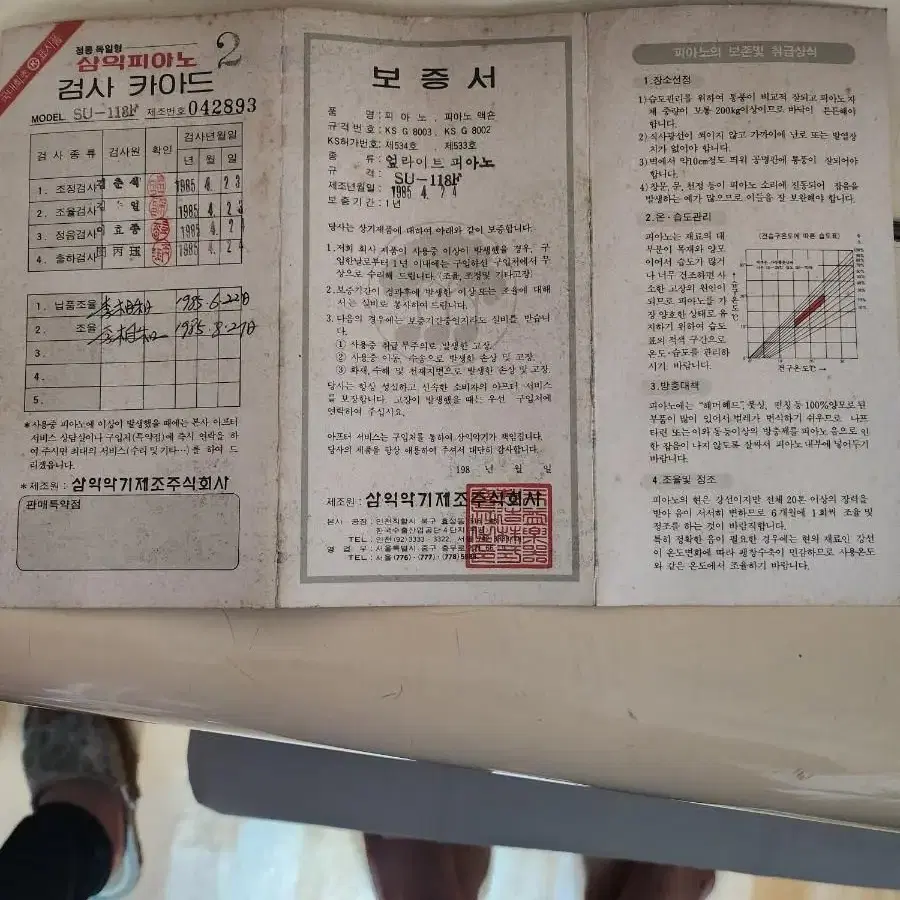 국내최초 K 표시품
정통 독일형
삼익피아노 2
검사 카아드
MODEL SU-118F 제조번호 042893
검 사 종 류 검사원 확인 검사년월일
년 월 일
1. 조정검사 김춘석 1985 4. 2 3
2. 조율검사 일 1985 4. 2 3
3. 정음검사 이효종 1985 4. 2
4. 출하검사 丙 珏 1985 4. 2
1. 납품조율 李相和 1985. 6. 22日
2. 조율 李相和 1985. 8. 27日
3.
4.
5.
*사용중 피아노에 이상이 발생했을 때에는 본사 아프터
서비스 상담실이나 구입처(특약점)에 즉시 연락을 하
여 주시면 최대의 서비스(수리 및 기타…)를 하여 드
리겠읍니다.
*제조원 : 삼익악기제조주식회사
판매특약점
보증서
품 명 : 피 아 노, 피아노 액숀
규격번호 : KS G 8003, KS G 8002
KS허가번호 : 제534호 제533호
종 류 : 엎라이트 피아노
규 격 : SU-118F
제조년월일 : 1985 4. 2 4
보증기간 : 1년
당사는 상기제품에 대하여 아래와 같이 보증합니다.
1. 저희 회사 제품이 사용중 이상이 발생했을 경우, 구
입한날로부터 1년 이내에는 구입하신 구입처에서 무
상으로 수리해 드립니다. (조율, 조정및 기타고장)
2. 보증기간이 경과후에 발생한 이상 또는 조율에 대해
서는 실비로 봉사하여 드립니다.
3. 다음의 경우에는 보증기간중일지라도 실비를 받습니
다.
① 사용중 취급 부주의로 발생한 고장.
② 사용중 이동, 수송으로 발생한 손상 및 고장.
③ 화재, 수해 및 천재지변으로 발생한 손상 및 고장.
당사는 항상 성실하고 신속한 소비자의 아프터·서비스
를 보장합니다. 고장이 발생했을 때는 우선 구입처에
연락하여 주십시요.
아프터 서비스는 구입처를 통하여 삼익악기가 책임집니다.
당사의 제품을 항상 애용하여 주셔서 대단히 감사합니다.
198 년 월 일
제조원 : 삼익악기제조주식회사
본사 공장 : 인천직할시 북구 효성동
한국수출산업공단 4단지
TEL : 인천 (92) 3333~3322, 서울
영 업 부 : 서울특별시 중구 충무로
TEL : 서울 (776)- (777)- (778)
피아노의 보존및 취급상식
1. 장소선정
1) 습도관리를 위하여 통풍이 비교적 잘되고 피아노 자
체 중량이 보통 200kg이상이므로 바닥이 튼튼해야
합니다.
2) 직사광선이 쬐이지 않고 가까이에 난로 또는 발열장
치가 없어야 합니다.
3) 벽에서 약10cm정도 띄워 공명판에 통풍이 잘되어야
합니다.
4) 창문, 문, 천정 등이 피아노 소리에 진동되어 잡음을
발생하는 예가 많으므로 이들을 잘 보완해야 합니다.
2. 온·습도관리
피아노는 재료의 대
부분이 목재와 양모
이어서 습도가 많거
나 너무 건조하면 사
소한 고장의 원인이
되므로 피아노를 가
장 양호한 상태로 유
지하기 위하여 습도
표의 적색 구간으로
온도·습도를 관리하
시기 바랍니다.
(건습구온도에 따른 습도표)
건구온도℃ →
3. 방충대책
피아노에는 "해머헤드", 붓싱, 펀칭 등 100%양모로 된
부품이 많이 있어서 벌레가 번식하기 쉬우므로 나프
타린 또는 이와 동등이상의 방충제를 피아노 음으로 인
한 잡음이 나지 않도록 잘싸서 피아노 내부에 넣어두기
바랍니다.
4. 조율및 정조
피아노의 현은 강선이지만 전체 20톤 이상의 장력을
받아 음이 서서히 변하므로 6개월에 1회씩 조율 및
정조를 하는 것이 바람직합니다.
특히 정확한 음이 필요한 경우에는 현의 재료인 강선
이 온도변화에 따라 팽창수축이 민감하므로 사용온도
와 같은 온도에서 조율하기 바랍니다.